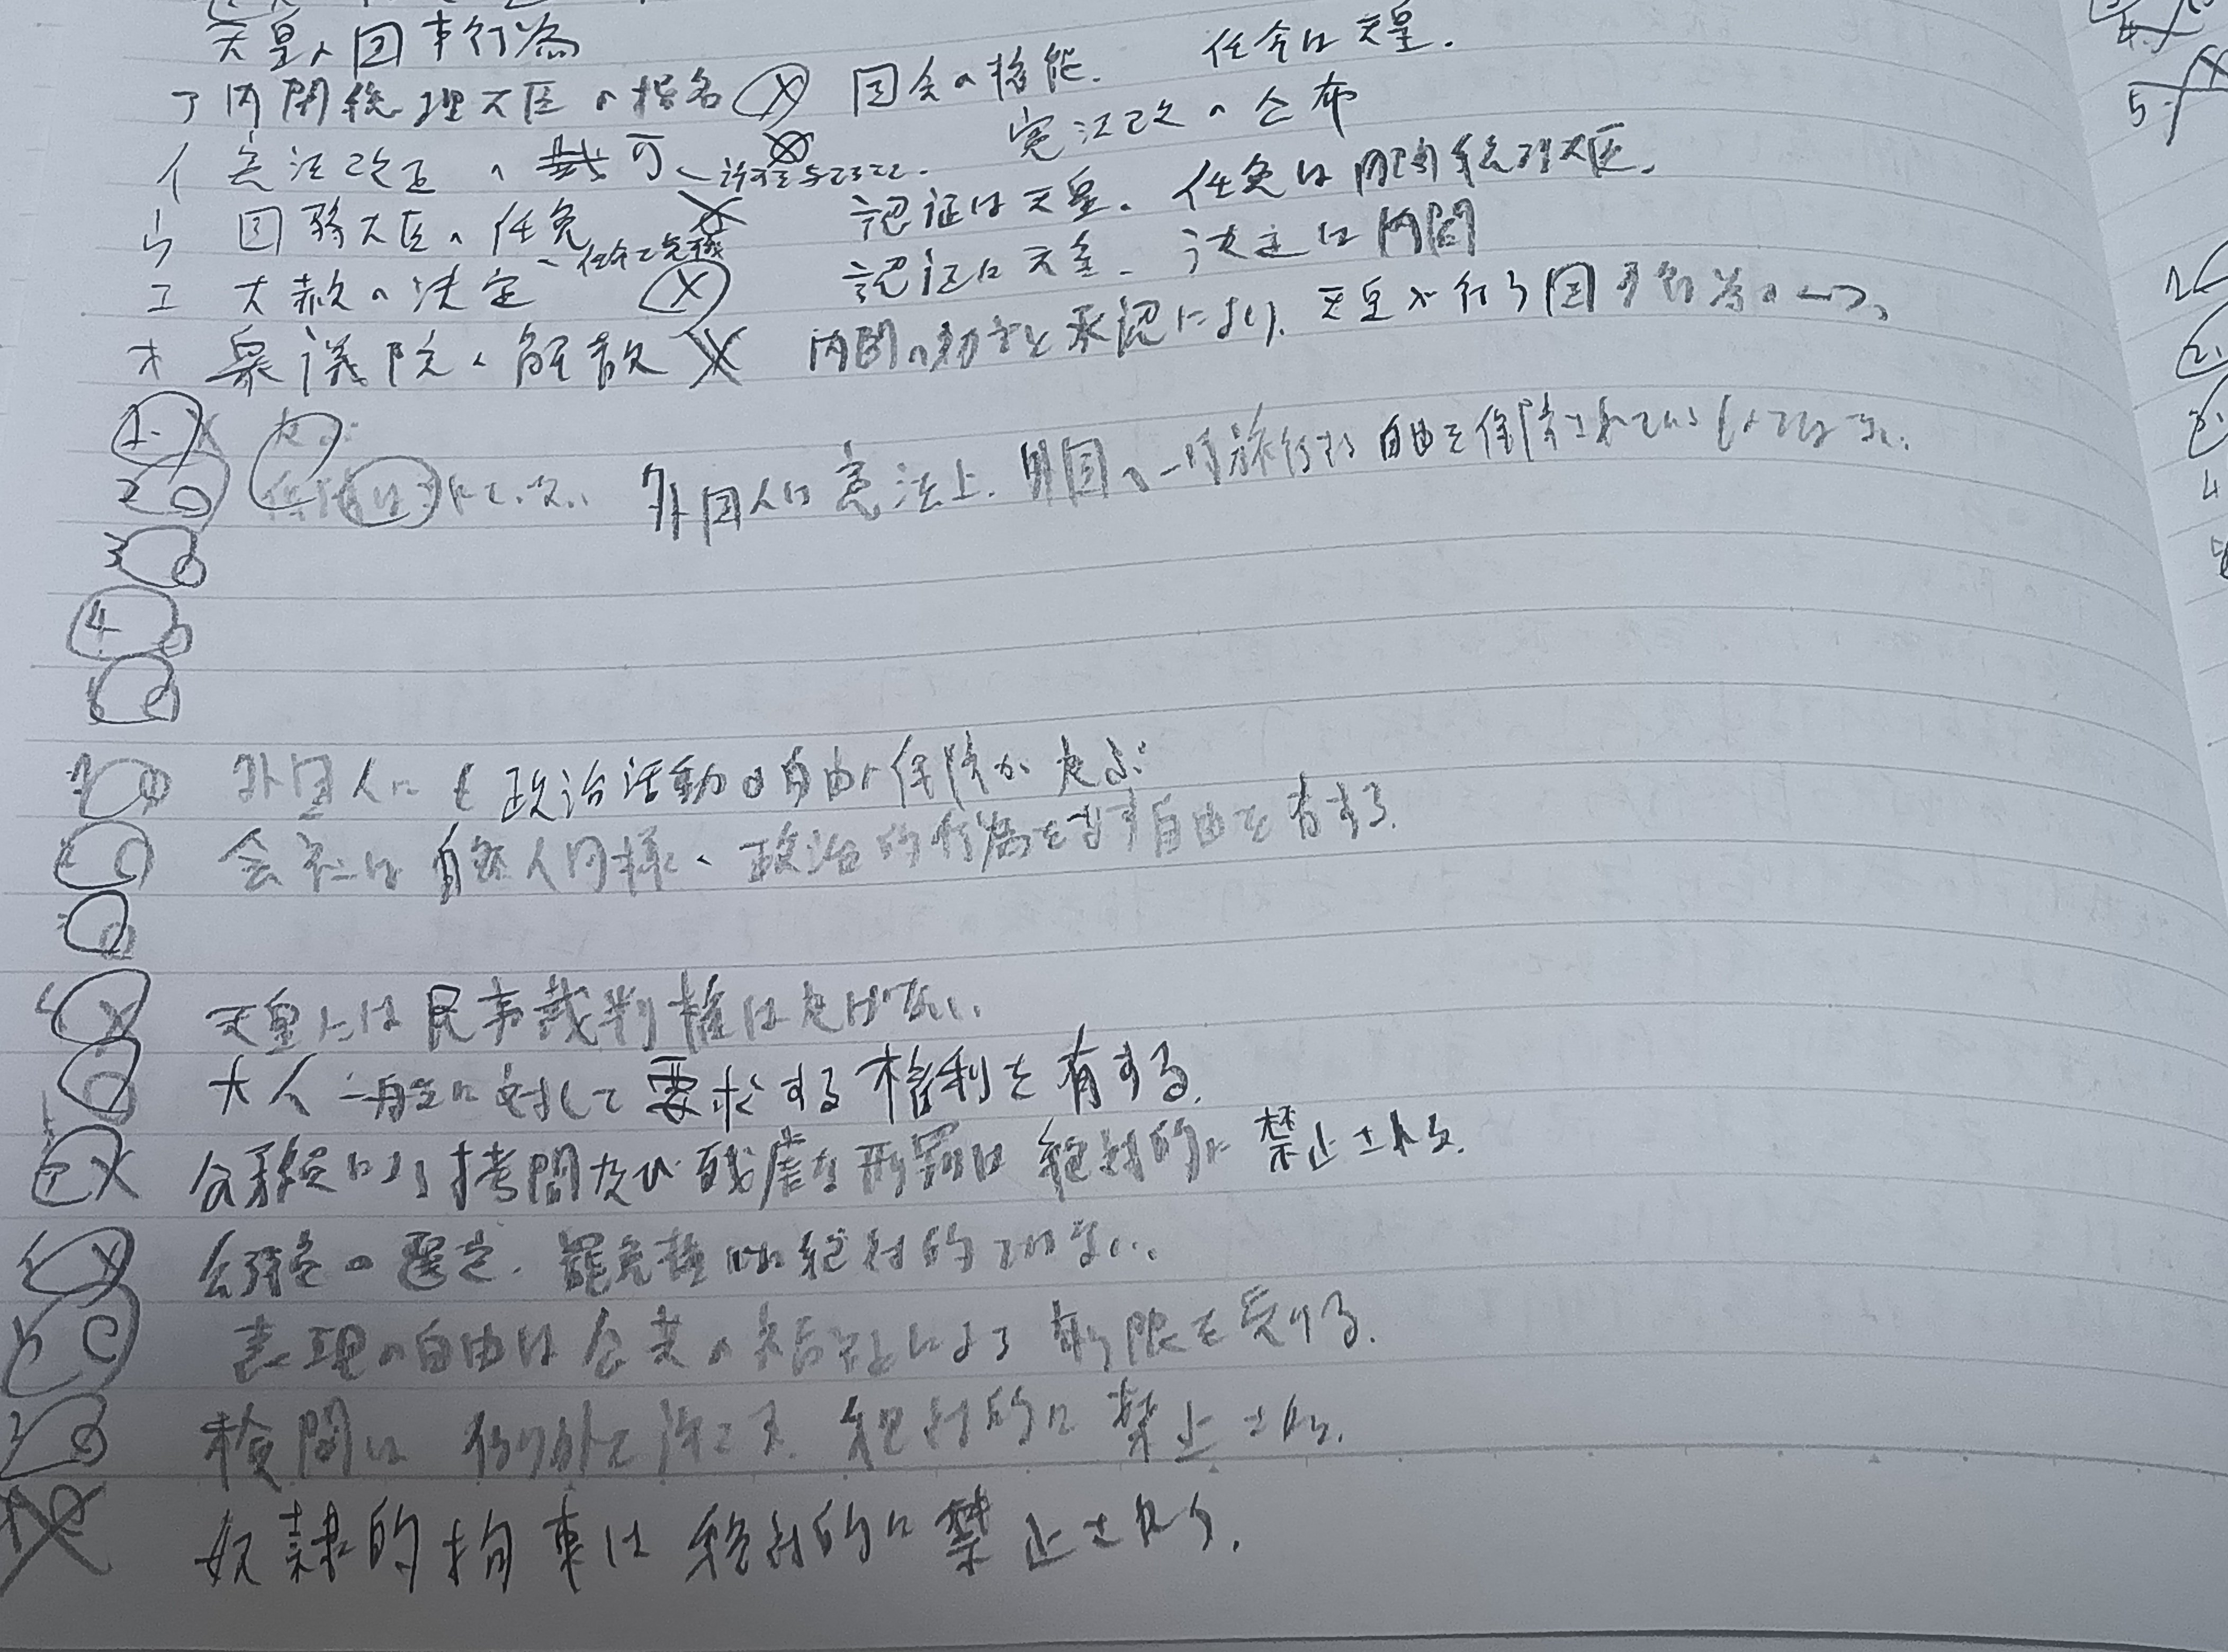 天皇の国事行為
ア 内閣総理大臣の指名 × 国会の権能. 任命は天皇.
イ 憲法改正の裁可、許可を与えること. × 憲法改の公布
ウ 国務大臣の任免 × 認証は天皇. 任免は内閣総理大臣.
任命と免職
エ 大赦の決定 × 認証は天皇. 決定は内閣
オ 衆議院の解散 × 内閣の助言と承認により. 天皇が行う国事行為の一つ.
1. × 及ぶ
2 ○ されていない. 外国人は憲法上. 外国へ一時旅行する自由を保障されているものではない.
3 ○
4 ○
5 ○
1 ○ 外国人にも政治活動の自由の保障が及ぶ
2 ○ 会社は自然人同様、政治的行為をなす自由を有する.
3 ○
4 × 天皇には民事裁判権は及ばない.
5 ○ 大人一般に対して要求する権利を有する.
ア × 公務員による拷問及び残虐な刑罰は絶対的に禁止される.
イ × 公務員の選定. 罷免権は絶対的ではない.
ウ ○ 表現の自由は公共の福祉による制限を受ける.
エ ○ 検閲は 絶対的に禁止される.
オ 奴隷的拘束は絶対的に禁止される.
4.
5.
1
2.
3.
4
5